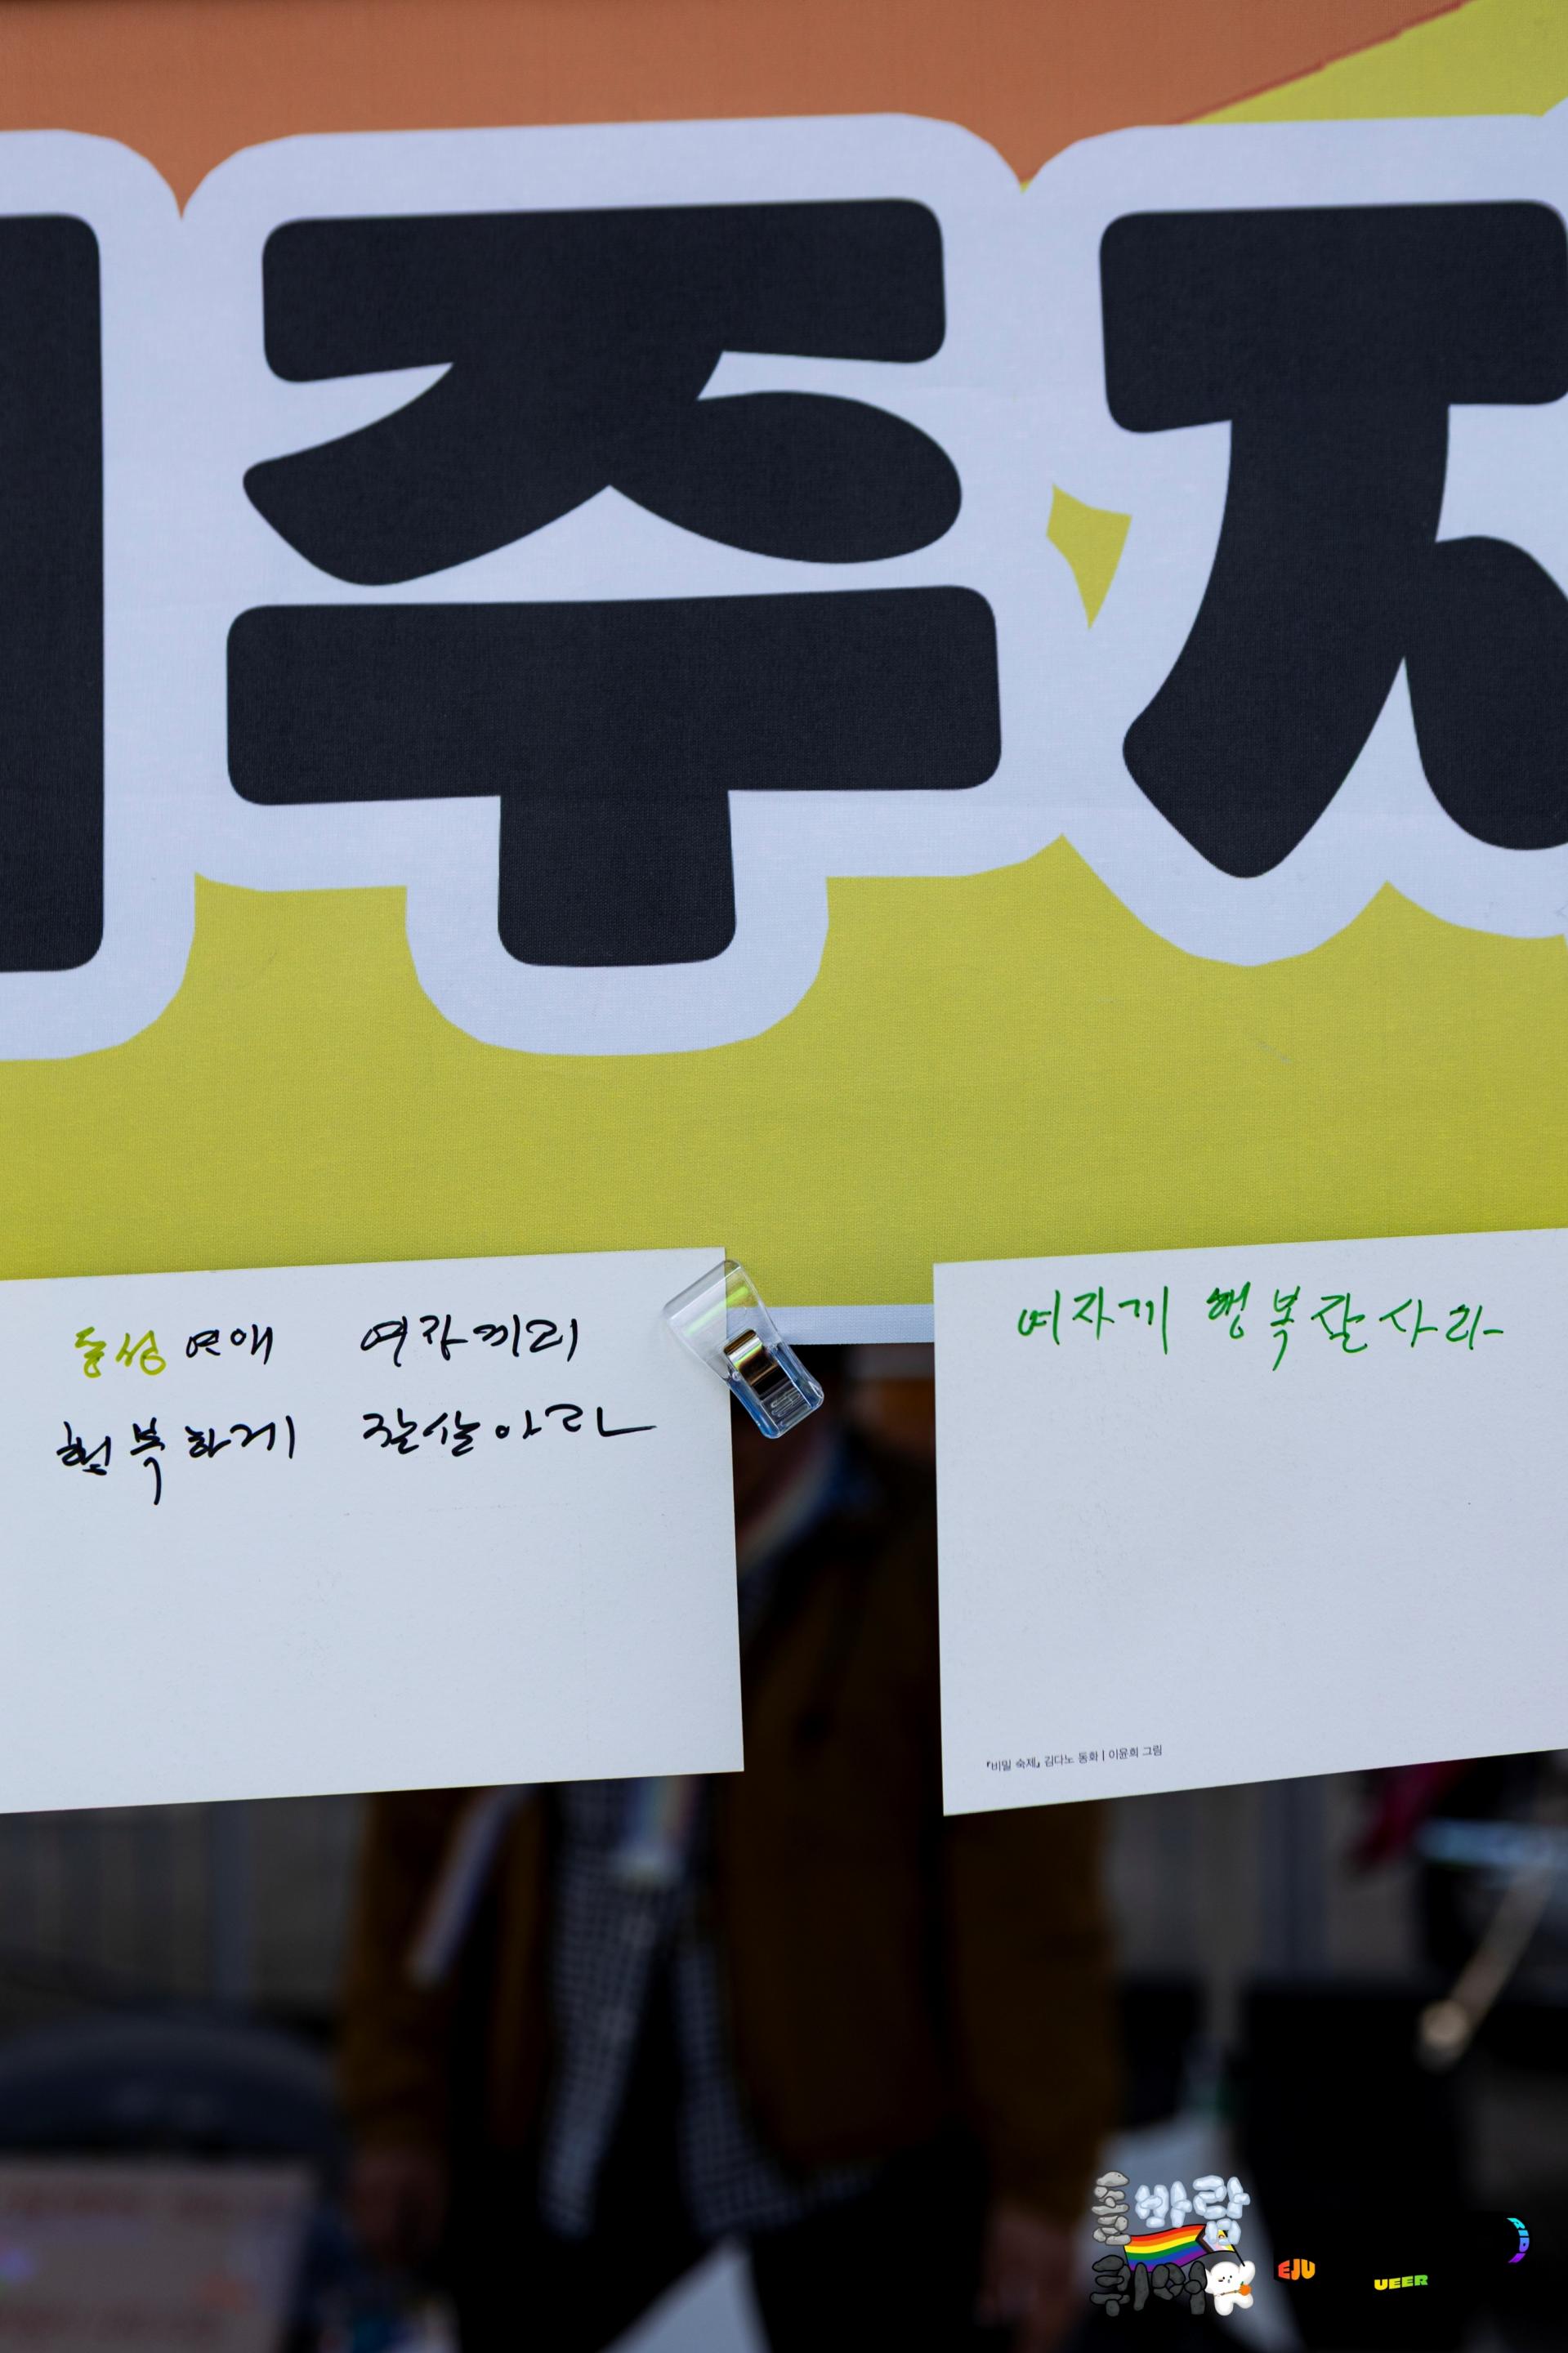 주
동성 연애 여자끼리
행복하게 잘살아라
여자끼 행복잘사라
『비밀 숙제』 김다노 동화 | 이윤희 그림
돌바람
퀴어
EJU
UEER
RIDE